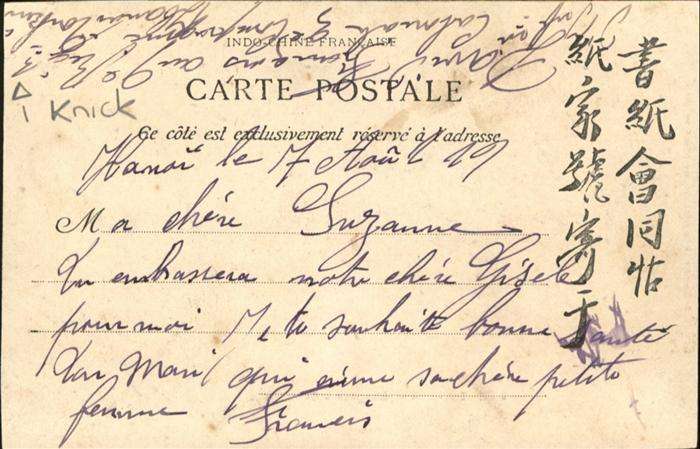 INDO-CHINE FRANÇAISE
CARTE POSTALE
Ce côté est exclusivement réservé à l'adresse
Knick
Hanoï le 7 Août
Ma chère Suzanne
Tu embrassera notre chère Gisèle
pour moi Je te souhaite bonne santé
Ton Mari qui aime sa chère petite
femme Francis
書紙會同帖
紙家號寄于